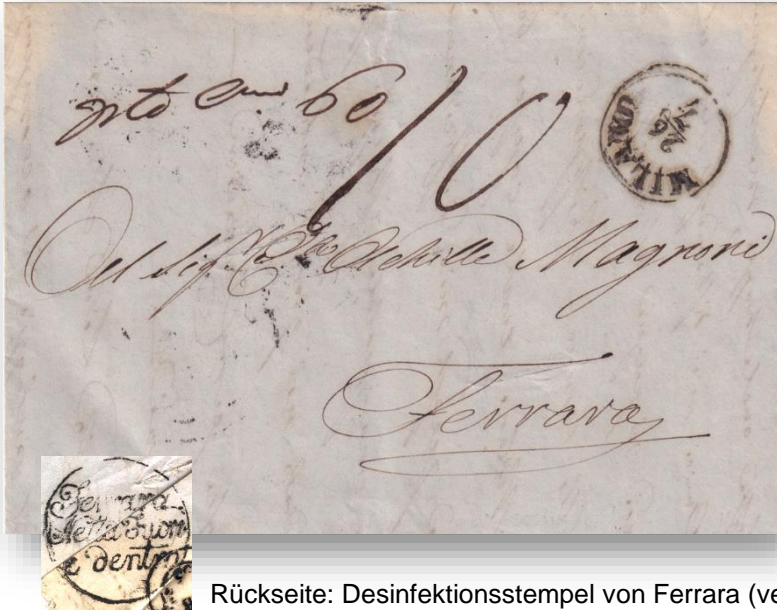 60
10
MILANO
26
Achille Magnoni
Ferrara
Ferrara
Netta Fuori
e dentro
Rückseite: Desinfektionsstempel von Ferrara (vo